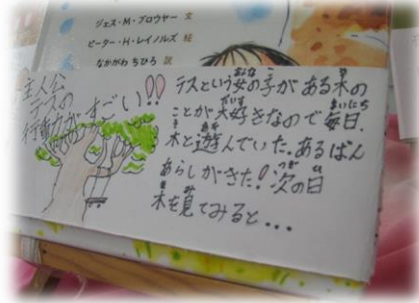 ジェス・M・ブロウヤー 文
ピーター・H・レイノルズ 絵
なかがわちひろ 訳
主人公
テスの
行動力が
すごい!!
テスという女の子がある木の
ことが大好きなので毎日、
木と遊んでいた。あるばん
あらしがきた!次の日
木を見てみると...